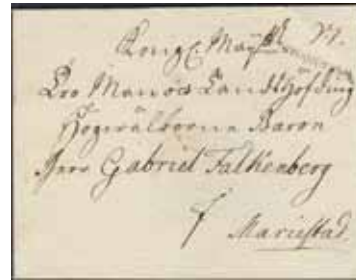 Kongl. Maÿ:tt
Troo Man och Landshöfding
Högwälborne Baron
Herr Gabriel Falkenberg
Mariestad.